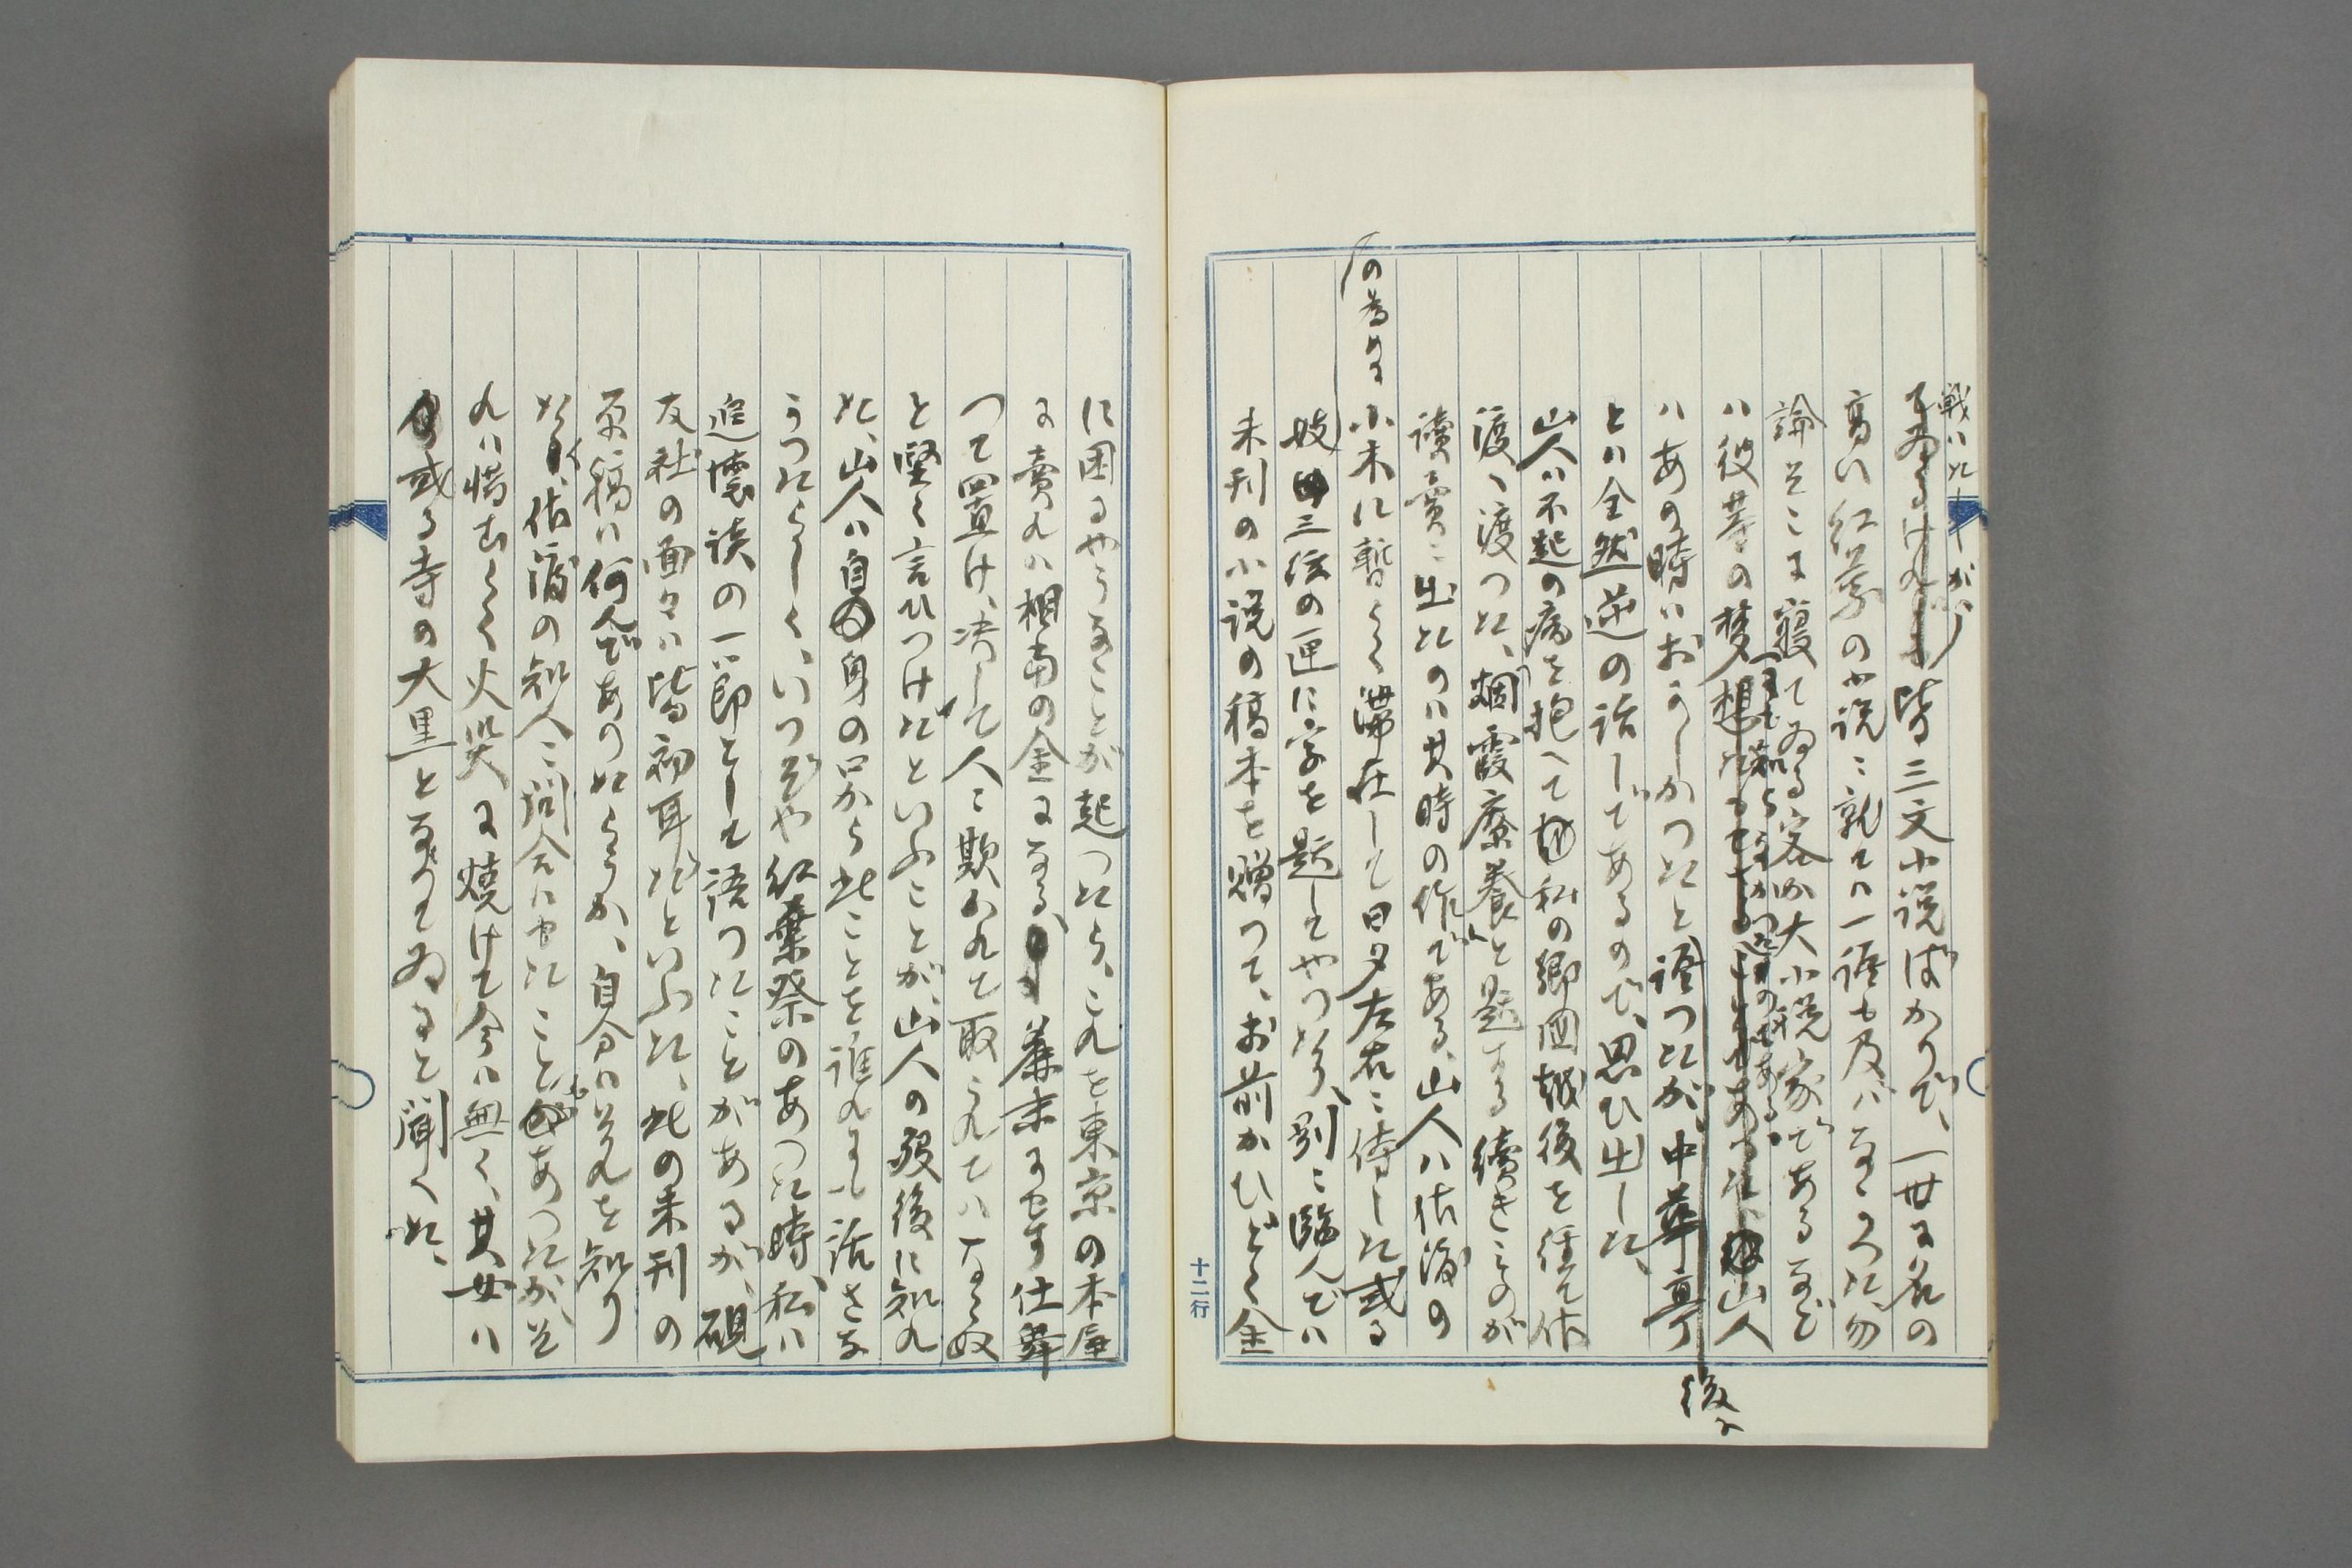 戦はれしが、
皆三文小説ばかりで、一世に名の
高い紅葉の小説に就ては一語も及ばなかつた、勿
論そこに寝てゐる客が大小説家であるなど
は彼等の夢にも知らなかつたのである。山人
はあの時はおかしかつたと後に語つたが、中華亭
とは全然逆の話しであるので、思ひ出した、
山人は不起の病を抱へて私の郷国越後を経て佐
渡へ渡つた、烟霞療養と題する続きものが
読売に出たのは其時の作である、山人は佐渡の
小木に暫らく滞在して日夕左右に侍した或る
妓の為に三弦の匣に字を題してやつたり、別に臨んでは
未刊の小説の稿本を贈つて、お前がひどく金
十二行
に困るやうなことが起つたら、これを東京の本屋
に売れば相当の金になる、粗末にせず仕舞
つて置け、決して人に欺かれて取られてはならぬ
と堅く言ひつけたといふことが、山人の歿後に知れ
た、山人は自身の口から此ことを誰れにも話さな
かつたらしく、いつぞや紅葉祭のあつた時、私は
追懐談の一節として語つたことがあるが、硯
友社の面々は皆初耳だといふた、此の未刊の
原稿は何んであつたらうか、自分はそれを知り
たく、佐渡の知人に問合はせたこともあつたが、そ
れは惜むらく火災に焼けて今は無く、其女は
或る寺の大黒となつてゐると聞いた、